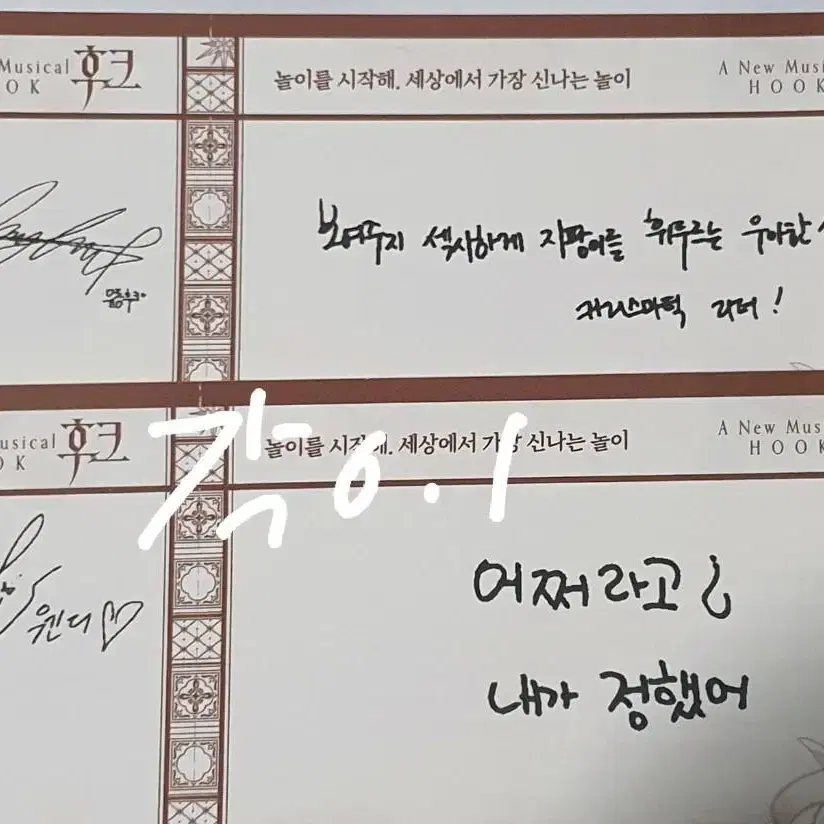 Musical 후크
O K
놀이를 시작해. 세상에서 가장 신나는 놀이
A New Musi
HOOK
보여주지 섹시하게 지팡이를 휘두르는 우아한
카리스마틱 리더!
usical 후크
O K
놀이를 시작해. 세상에서 가장 신나는 놀이
A New Mus
HOOK
각 0.1
어쩌라고?
내가 정했어
웬디♡